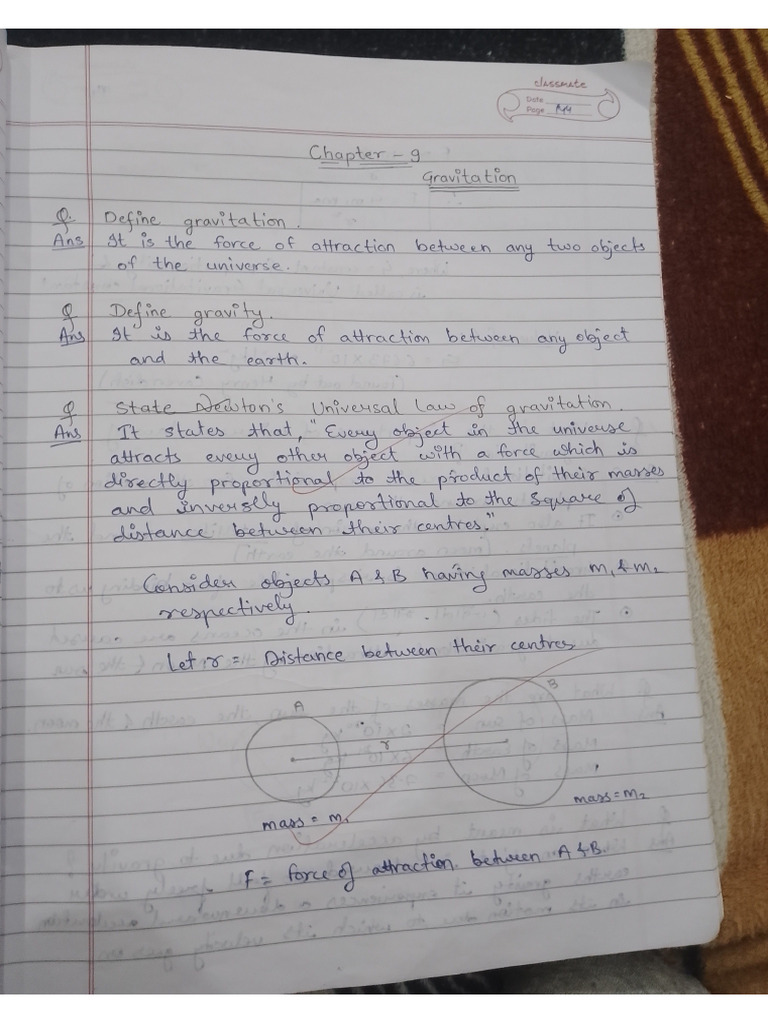 classmate
Date
Page
Chapter - 9
Gravitation
Q. Define gravitation.
Ans It is the force of attraction between any two objects
of the universe.
Q Define gravity.
Ans It is the force of attraction between any object
and the earth.
Q State Newton's Universal Law of gravitation.
Ans It states that, "Every object in the universe
attracts every other object with a force which is
directly proportional to the product of their masses
and inverslly proportional to the square of
distance between their centres."
Consider objects A & B having masses m₁ & m₂
respectively.
Let r = Distance between their centres
A
B
r
mass = m₁
mass = m₂
F = force of attraction between A & B.